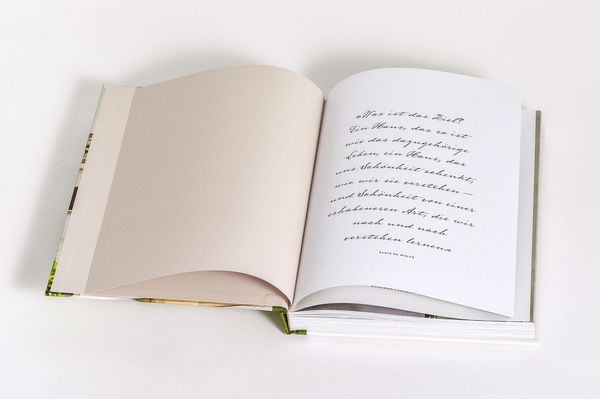 »Was ist das Ziel?
Ein Haus, das so ist
wie das dazugehörige
Leben, ein Haus, das
uns Schönheit schenkt,
wie wir sie verstehen –
und Schönheit von einer
erhabeneren Art, die wir
nach und nach
verstehen lernen«
ELSIE DE WOLFE